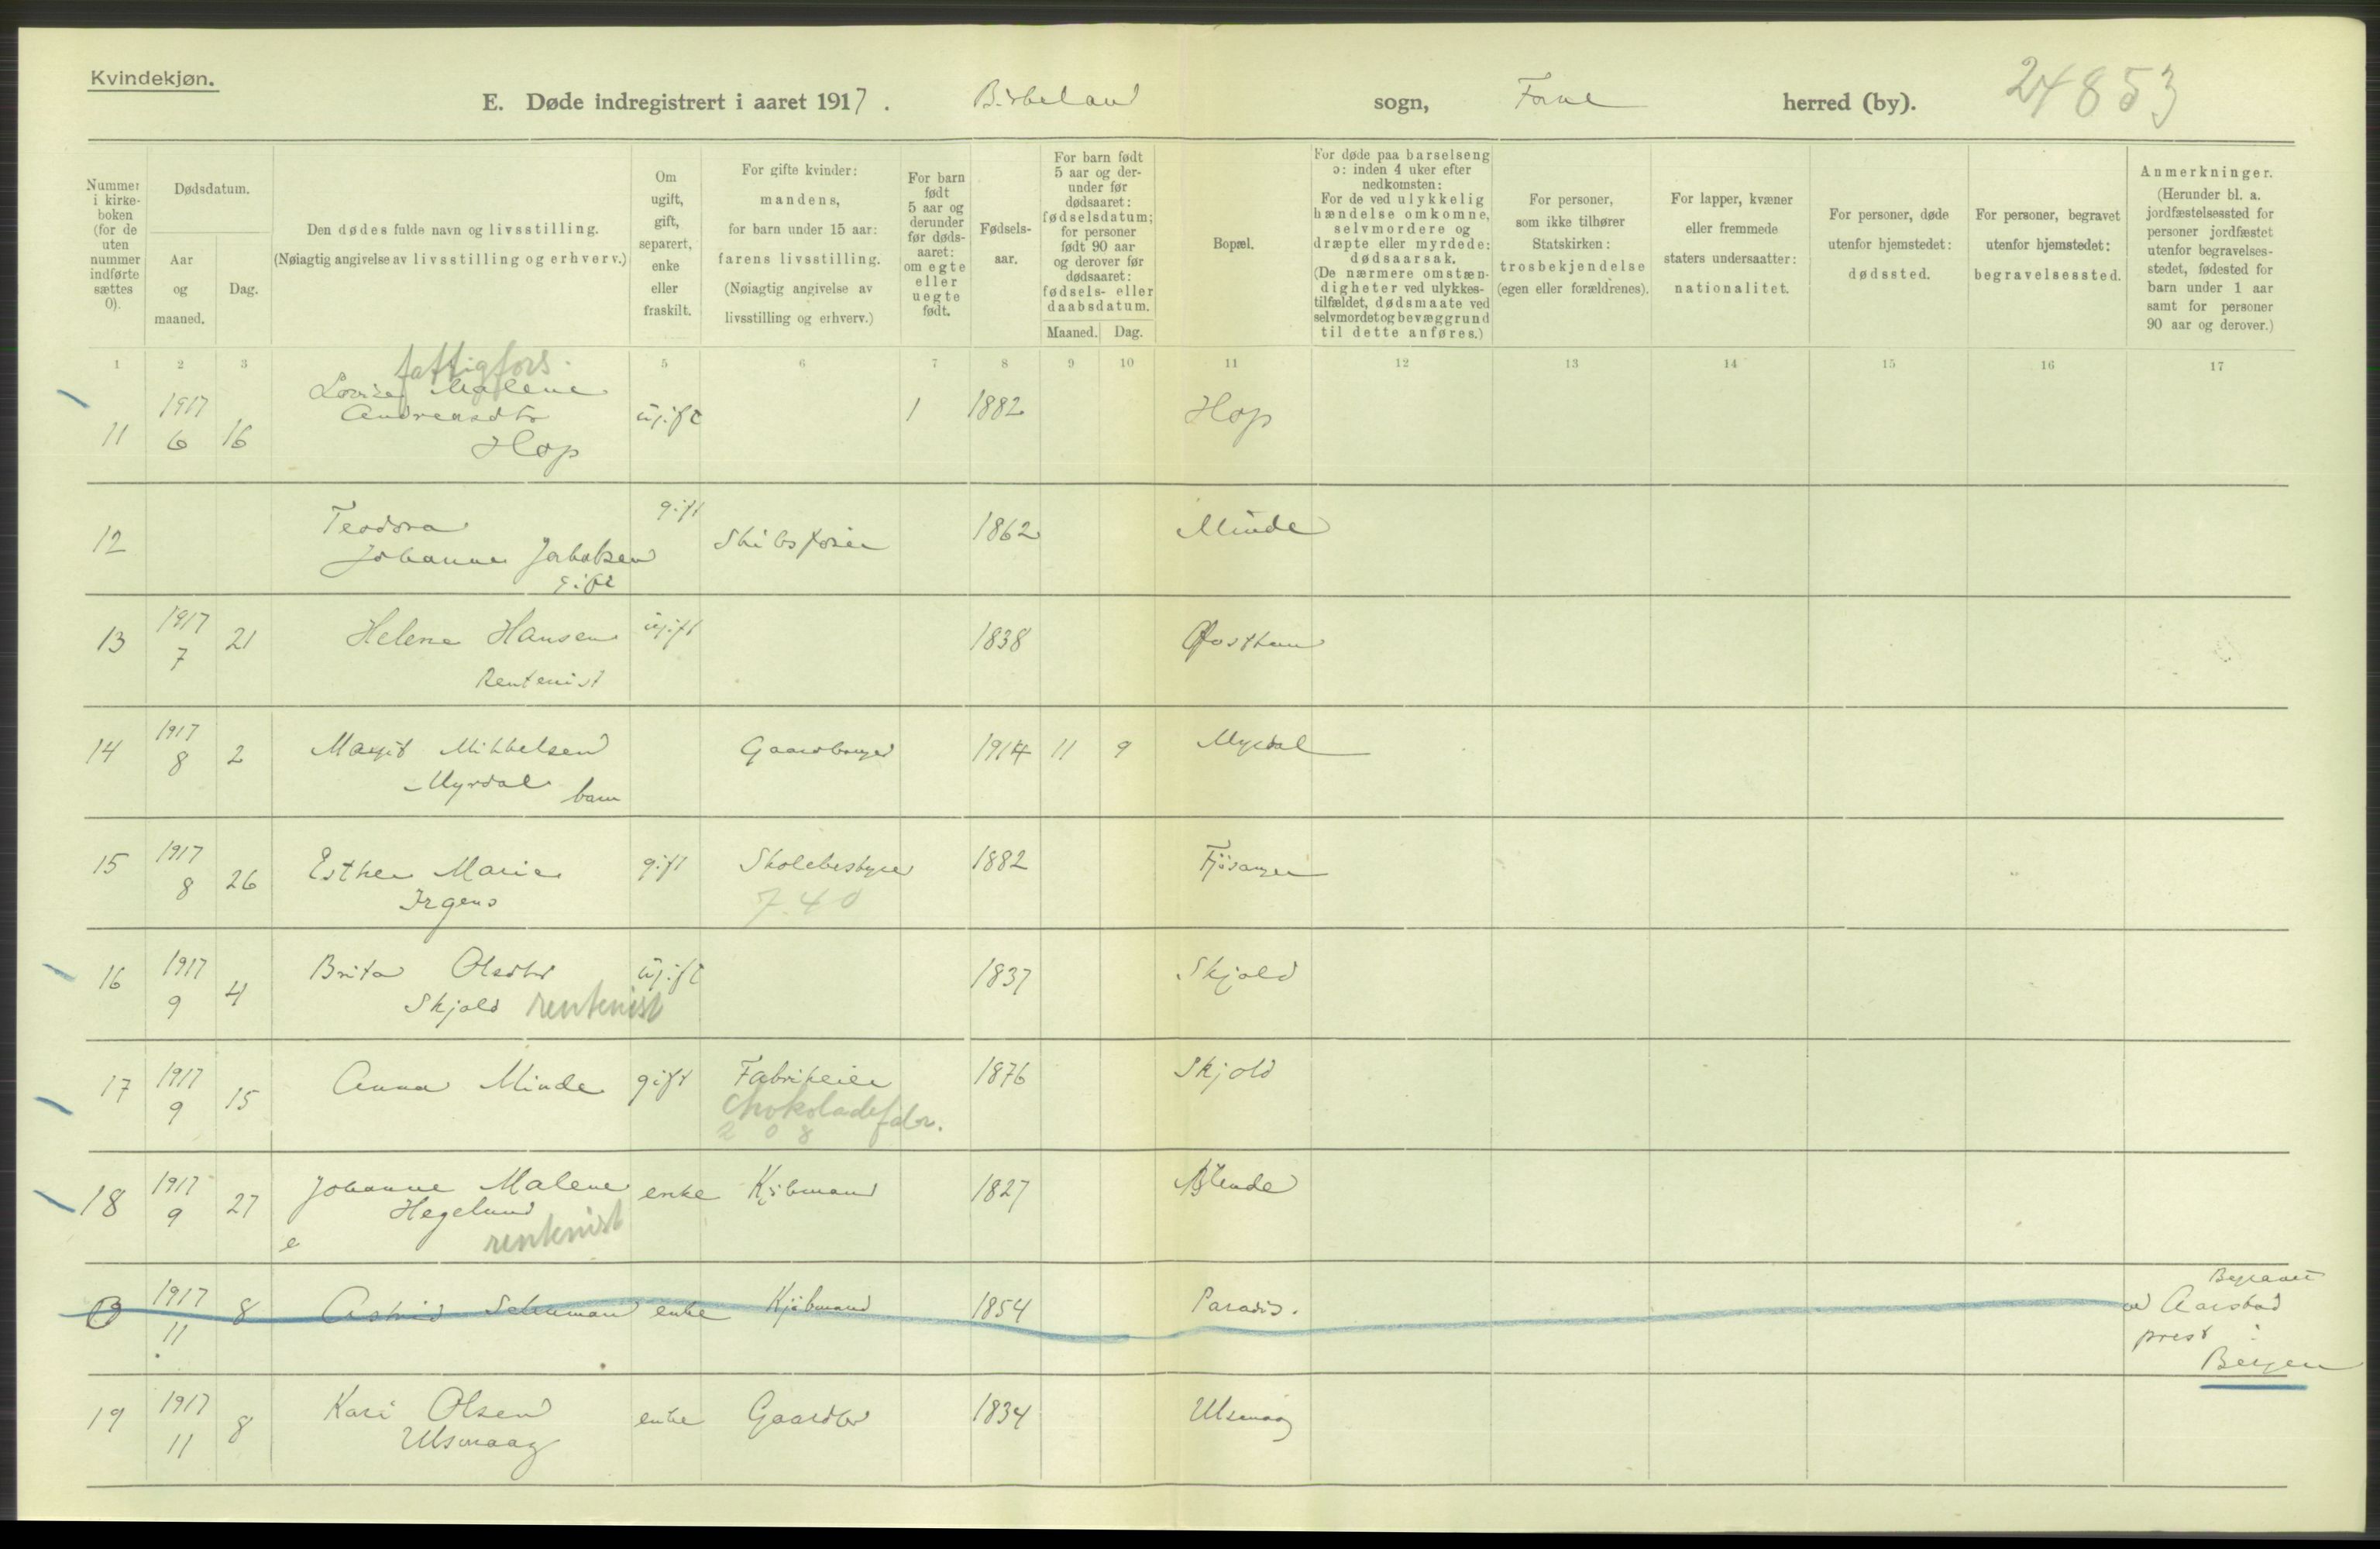 Kvindekjøn.
E. Døde indregistrert i aaret 1917. Birkeland sogn, Fane herred (by). 24853
Nummer i kirkeboken (for de uten nummer indførte sættes 0).
Dødsdatum.
Aar og maaned.
Dag.
Den dødes fulde navn og livsstilling.
(Nøiagtig angivelse av livsstilling og erhverv.)
Om ugift, gift, separert, enke eller fraskilt.
For gifte kvinder: mandens, for barn under 15 aar: farens livsstilling. (Nøiagtig angivelse av livsstilling og erhverv.)
For barn født 5 aar og derunder før dødsaaret: om egte eller uegte født.
Fødselsaar.
For barn født 5 aar og derunder før dødsaaret: fødselsdatum; for personer født 90 aar og derover før dødsaaret: fødsels- eller daabsdatum.
Maaned. Dag.
Bopæl.
For døde paa barselseng ɔ: inden 4 uker efter nedkomsten: For de ved ulykkelig hændelse omkomne, selvmordere og dræpte eller myrdede: dødsaarsak. (De nærmere omstændigheter ved ulykkestilfældet, dødsmaate ved selvmordet og bevæggrund til dette anføres.)
For personer, som ikke tilhører Statskirken: trosbekjendelse (egen eller forældrenes).
For lapper, kvæner eller fremmede staters undersaatter: nationalitet.
For personer, døde utenfor hjemstedet: dødssted.
For personer, begravet utenfor hjemstedet: begravelsessted.
Anmerkninger. (Herunder bl. a. jordfæstelsessted for personer jordfæstet utenfor begravelsesstedet, fødested for barn under 1 aar samt for personer 90 aar og derover.)
1 2 3 5 6 7 8 9 10 11 12 13 14 15 16 17
fattigfors.
11 1917 6 16 Lovise Malene Andreasdtr Hop ugift 1 1882 Hop
12 Teodora Johanne Jakobsen gift gift Skibsfører 1862 Minde
13 1917 7 21 Helene Hansen Rentenist ugift 1838
14 1917 8 2 Magit Mikkelsen Myrdal barn Gaardbruger 1914 11 9 Myrdal
15 1917 8 26 Esther Marie Irgens gift Skolebestyrer 7.40 1882 Fjøsanger
16 1917 9 4 Brita Olsdtr Skjold rentenist ugift 1837 Skjold
17 1917 9 15 Anna Minde gift Fabrikeier chokoladefabr. 208 1876 Skjold
18 1917 9 27 Johanne Malene Hegelund e rentenist enke Kjøbmand 1827
0 1917 11 8 Astrid Schuman enke Kjøbmand 1854 Paradis. Begravet ved Aarstad prest i Bergen
19 1917 11 8 Kari Olsen Ulsmaag enke Gaardbr 1834 Ulsmaag